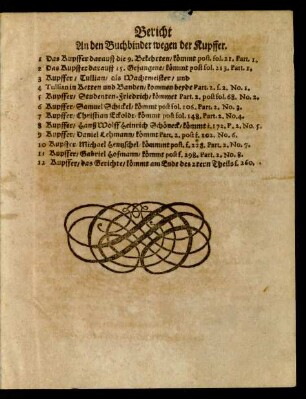 Bericht
An den Buchbinder wegen der Kupffer.
1 Das Kupffer darauff die 9. Bekehrten/ kömmt post. fol. 21. Part. 1.
2 Das Kupffer darauff 15. Gefangene/ kömmt post fol. 213. Part. 1.
3 Kupffer/ Tullian/ als Wachtmeister/ und
4 Tullian in Ketten und Banden/ kommen beyde Part. 2. f. 2. No. 1.
5 Kupffer/ Studenten-Friedrich/ kömmet Part. 2. post fol. 68. No. 2.
6 Kupffer/ Samuel Schickel/ kömmt post fol. 106. Part. 2. No. 3.
7 Kupffer/ Christian Eckold/ kömmt post fol. 148. Part. 2. No. 4.
8 Kupffer/ Hanß Wolff Heinrich Schöneck/ kömmt f. 172. P. 2. No. 5.
9 Kupffer/ Daniel Lehmann/ kömmt Part. 2. post f. 202. No. 6.
10 Kupffer/ Michael Hentzschel kömmt post. f. 228. Part. 2. No. 7.
11 Kupffer/ Gabriel Hofmann/ kömmt post f. 298. Part. 2. No. 8.
12 Kupffer/ das Gerichte/ kömmt am Ende des 2tern Theils f. 260.